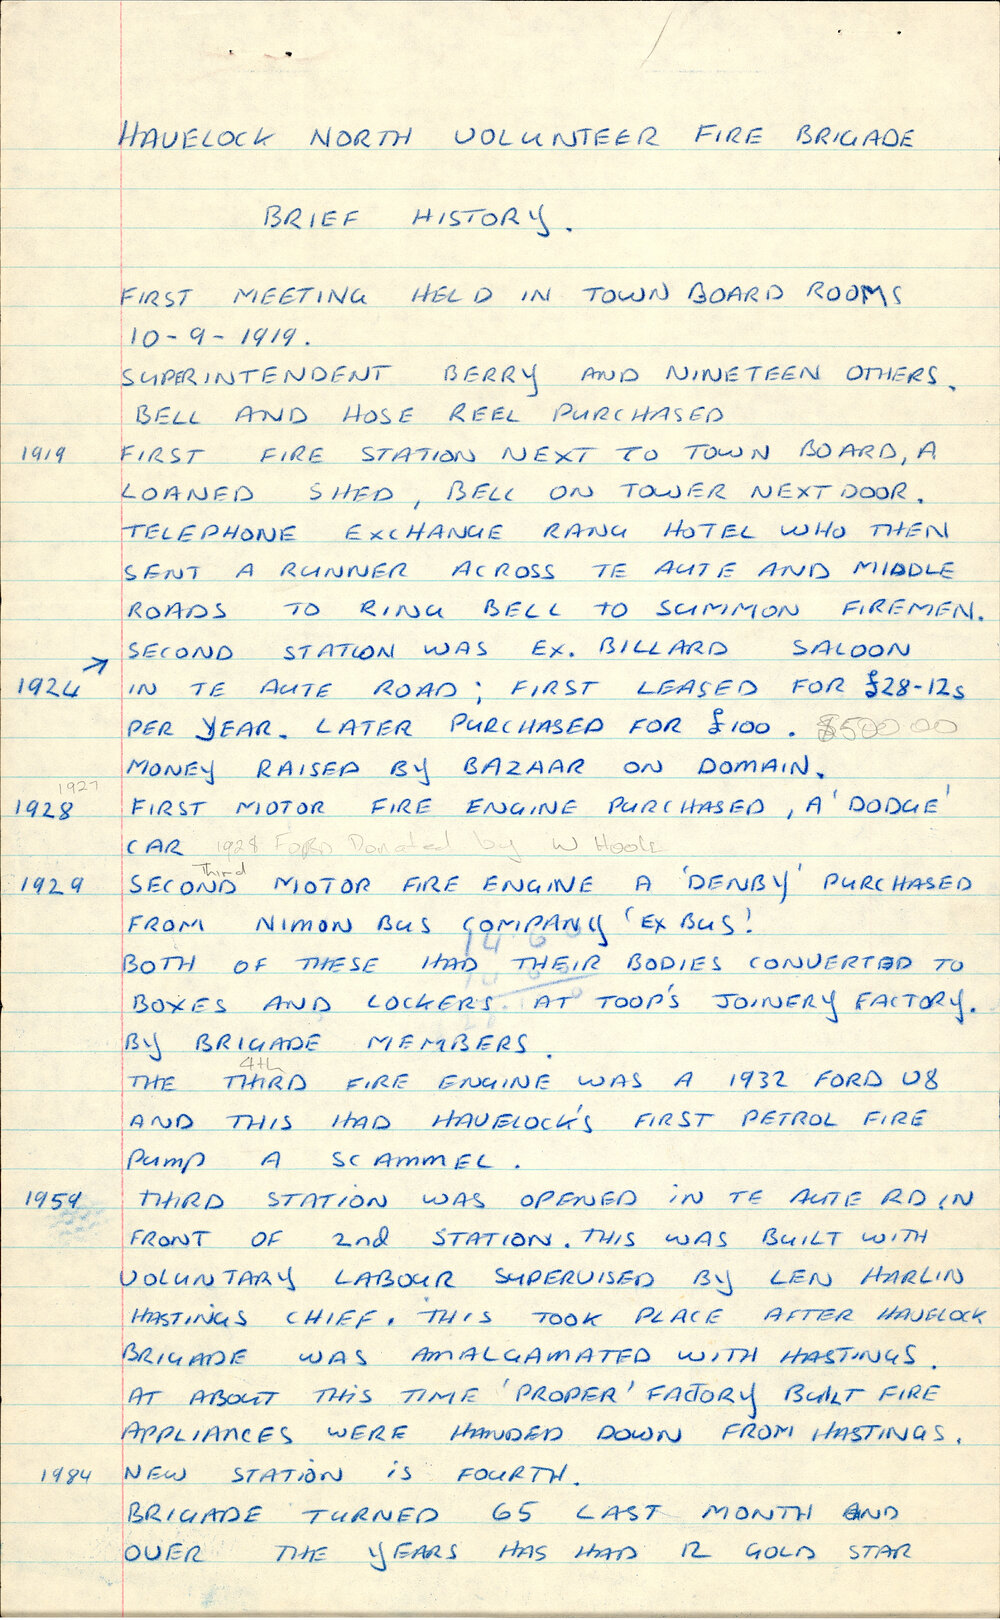 HAVELOCK NORTH VOLUNTEER FIRE BRIGADE
BRIEF HISTORY.
FIRST MEETING HELD IN TOWN BOARD ROOMS
10-9-1919.
SUPERINTENDENT BERRY AND NINETEEN OTHERS.
BELL AND HOSE REEL PURCHASED
1919 FIRST FIRE STATION NEXT TO TOWN BOARD, A
LOANED SHED, BELL ON TOWER NEXT DOOR.
TELEPHONE EXCHANGE RANG HOTEL WHO THEN
SENT A RUNNER ACROSS TE AUTE AND MIDDLE
ROADS TO RING BELL TO SUMMON FIREMEN.
→ SECOND STATION WAS EX. BILLARD SALOON
1924 IN TE AUTE ROAD; FIRST LEASED FOR £28-12s
PER YEAR. LATER PURCHASED FOR £100. $500.00
MONEY RAISED BY BAZAAR ON DOMAIN.
1927
1928 FIRST MOTOR FIRE ENGINE PURCHASED, A 'DODGE'
CAR 1928 FORD Donated by W Hoole
Third
1929 SECOND MOTOR FIRE ENGINE A 'DENBY' PURCHASED
FROM NIMON BUS COMPANY 'EX BUS'.
BOTH OF THESE HAD THEIR BODIES CONVERTED TO
BOXES AND LOCKERS. AT TOOP'S JOINERY FACTORY.
BY BRIGADE MEMBERS.
4th
THE THIRD FIRE ENGINE WAS A 1932 FORD V8
AND THIS HAD HAVELOCK'S FIRST PETROL FIRE
PUMP A SCAMMEL.
1959 THIRD STATION WAS OPENED IN TE AUTE RD IN
FRONT OF 2nd STATION. THIS WAS BUILT WITH
VOLUNTARY LABOUR SUPERVISED BY LEN HARLIN
HASTINGS CHIEF. THIS TOOK PLACE AFTER HAVELOCK
BRIGADE WAS AMALGAMATED WITH HASTINGS.
AT ABOUT THIS TIME 'PROPER' FACTORY BUILT FIRE
APPLIANCES WERE HANDED DOWN FROM HASTINGS.
1984 NEW STATION IS FOURTH.
BRIGADE TURNED 65 LAST MONTH AND
OVER THE YEARS HAS HAD 12 GOLD STAR